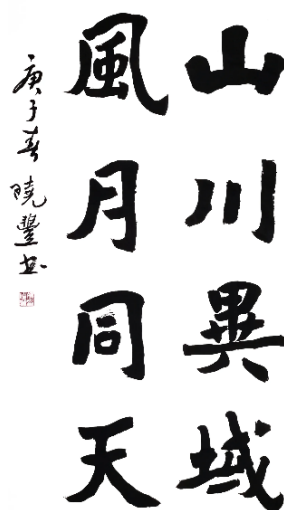 山川異域
風月同天
庚子春曉豐書